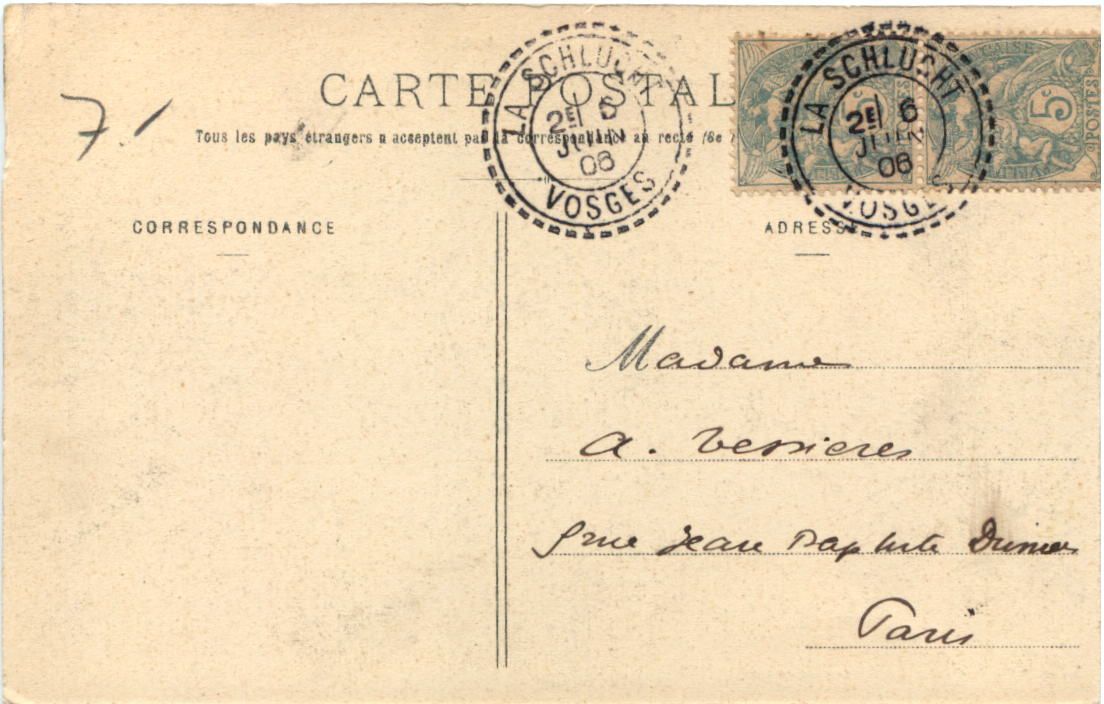 CARTE POSTAL
7
Tous les pays étrangers n acceptent pas la correspondance au recto (Se
LA SCHLUCHT
2E 6
JUIN
06
VOSGES
LA SCHLUCHT
2E 6
JUIN
06
VOSGES
5c
POSTES
CORRESPONDANCE
ADRESSE
Madame
A. Vessieres
rue Jean Baptiste Dumas
Paris